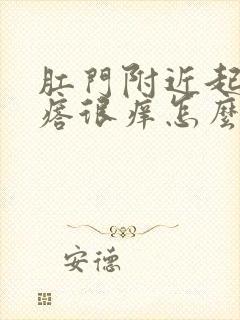 肛門附近起
痞很痒怎麼
安德